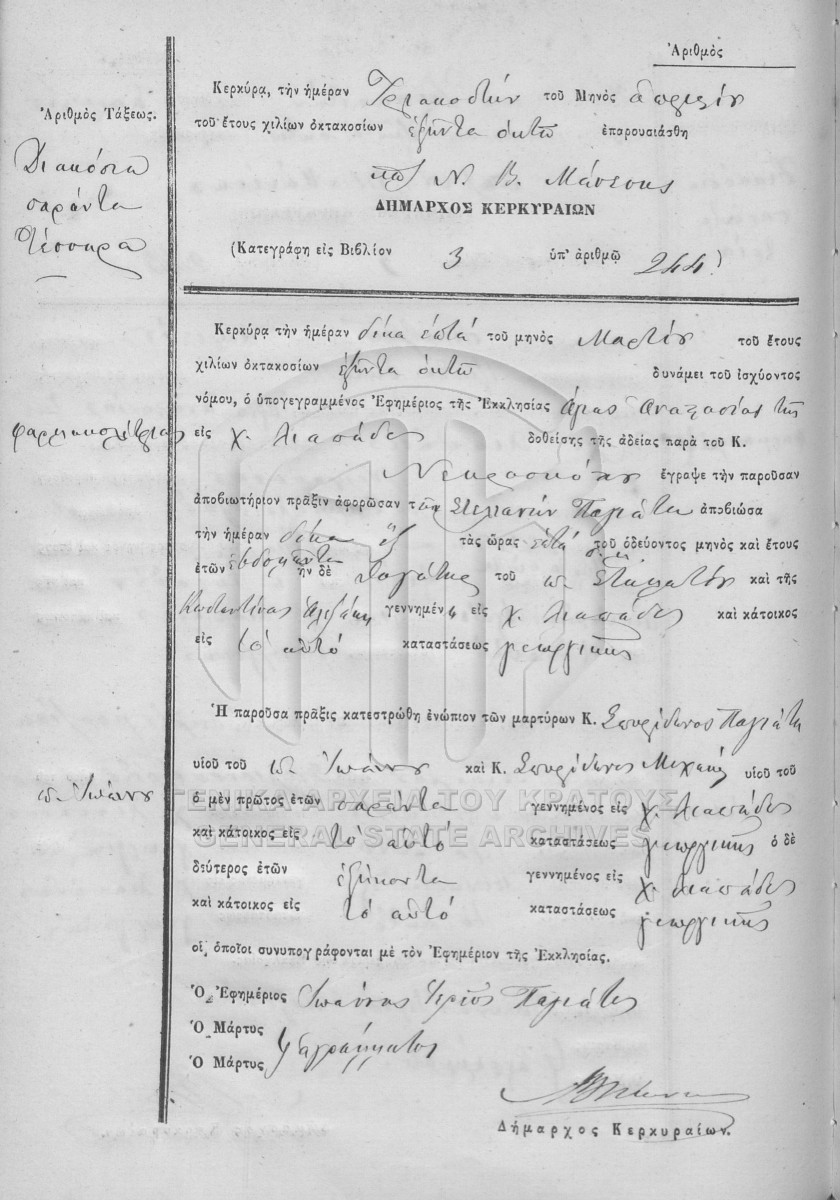 Ἀριθμὸς
Κερκύρα, τὴν ἡμέραν Τριακοστήν τοῦ Μηνὸς Ἀπριλίου
Ἀριθμὸς Τάξεως.
τοῦ ἔτους χιλίων ὀκτακοσίων ἑξῆντα ὀκτὼ ἐπαρουσιάσθη
Διακόσια
σαράντα
τέσσερα
Ν. Β. Μάνεσης
ΔΗΜΑΡΧΟΣ ΚΕΡΚΥΡΑΙΩΝ
(Κατεγράφη εἰς Βιβλίον 3 ὑπ' ἀριθμῷ 244)
Κερκύρα τὴν ἡμέραν δέκα ἑπτά τοῦ μηνὸς Μαρτίου τοῦ ἔτους
χιλίων ὀκτακοσίων ἑξῆντα ὀκτὼ δυνάμει τοῦ ἰσχύοντος
νόμου, ὁ ὑπογεγραμμένος Ἐφημέριος τῆς Ἐκκλησίας Ἁγίας Αναστασίας τῆς
φαρμακολύτριας εἰς χ. Λιαπάδες δοθείσης τῆς ἀδείας παρὰ τοῦ Κ.
ἔγραψε τὴν παροῦσαν
ἀποβιωτήριον πρᾶξιν ἀφορῶσαν τὴν Στελιανήν Παγιάτη ἀποβιώσα
τὴν ἡμέραν δέκα ἕξ τὰς ὥρας ἑπτά τοῦ ὁδεύοντος μηνὸς καὶ ἔτους
ἐτῶν ἑβδομῆντα ἦν δὲ τοῦ π. Σταματίου καὶ τῆς
Κωσταντίνας γεννημένη εἰς χ. Λιαπάδες καὶ κάτοικος
εἰς τὸ αὐτό καταστάσεως γεωργικῆς
Ἡ παροῦσα πρᾶξις κατεστρώθη ἐνώπιον τῶν μαρτύρων Κ. Σπυρίδωνος Παγιάτη
υἱοῦ τοῦ π. Ἰωάννου καὶ Κ. Σπυρίδωνος υἱοῦ τοῦ
π. Ἰωάννου
ὁ μὲν πρῶτος ἐτῶν σαράντα γεννημένος εἰς χ. Λιαπάδες
ΓΕΝΙΚΑ ΑΡΧΕΙΑ ΤΟΥ ΚΡΑΤΟΥΣ
GENERAL STATE ARCHIVES
καὶ κάτοικος εἰς τὸ αὐτό καταστάσεως γεωργικῆς ὁ δὲ
δεύτερος ἐτῶν ἑξήκοντα γεννημένος εἰς χ. Λιαπάδες
καὶ κάτοικος εἰς τὸ αὐτό καταστάσεως γεωργικῆς
οἱ ὁποῖοι συνυπογράφονται μὲ τὸν Ἐφημέριον τῆς Ἐκκλησίας.
Ὁ Ἐφημέριος Ἰωάννης Ἱερεὺς Παγιάτης
Ὁ Μάρτυς
Ὁ Μάρτυς ἀγράμματος
Δήμαρχος Κερκυραίων.